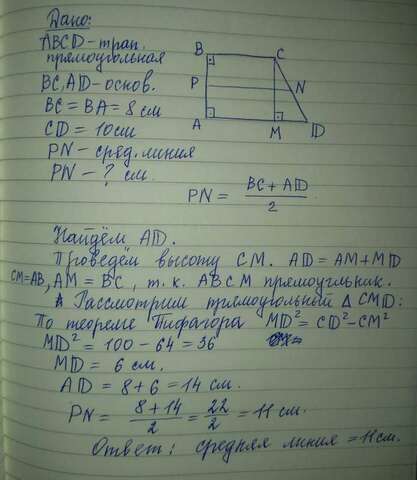 Дано:
ABCD - трап.
прямоугольная
BC, AD - основ.
BC = BA = 8 см
CD = 10 см
PN - сред. линия
PN - ? см.
B C
P N
A M D
PN = BC + AD / 2
Найдём AD.
Проведём высоту CM. AD = AM + MD
CM=AB, AM = BC, т.к. ABCM прямоугльник.
Рассмотрим прямоугольный Δ CMD:
По теореме Пифагора MD² = CD² - CM²
MD² = 100 - 64 = 36
MD = 6 см.
AD = 8 + 6 = 14 см.
PN = 8 + 14 / 2 = 22 / 2 = 11 см.
Ответ: средняя линия = 11 см.